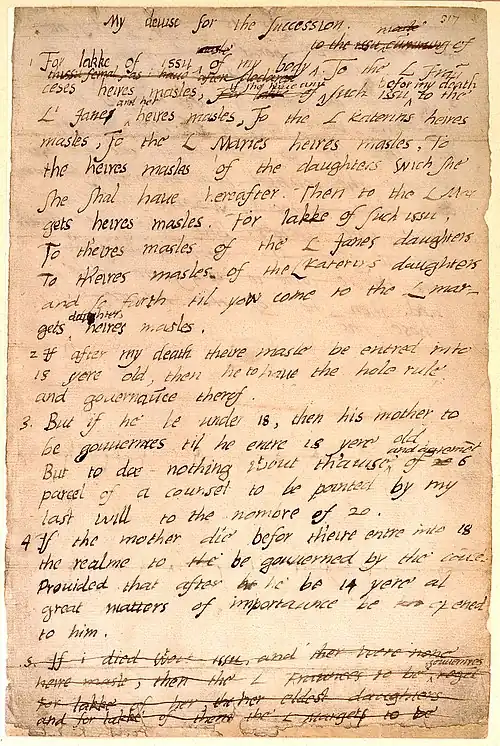 My deuise for the succession.
317
1 For lakke of issu masle of my body to the issu masle cumming of
thissu femal, as i haue after declared. To the L Fraun
ceses heires masles, if she haue any such issu befor my death to the
L' Janes and her heires masles, To the L Katerins heires
masles, To the L Maries heires masles, To
the heires masles of the daughters wich she
she shal haue hereafter. Then to the L Mar
gets heires masles. For lakke of such issu,
To theires masles of the L Janes daughters
To theires masles of the L Katerins daughters
and so forth til yow come to the L mar-
gets daughters heires masles.
2 If after my death theire masle be entred into
18 yere old, then he to haue the hole rule
and gouernauce therof.
3. But if he be under 18, then his mother to
be gouuernres til he entre 18 yere old
But to doe nothing wout thauise and agremēt of 6
parcel of a counsel to be pointed by my
last will to the nombre of 20.
4 If the mother die befor theire entre into 18
the realme to be gouuerned by the coūcel
Prouided that after he be 14 yere al
great matters of importaunce be opened
to him.
5. If i died wout issu, and ther were none
heire masle, then the L Fraunces to be gouuernres reget
for lakke of her, her eldest daughters
and for lakke of them the L Margets to be